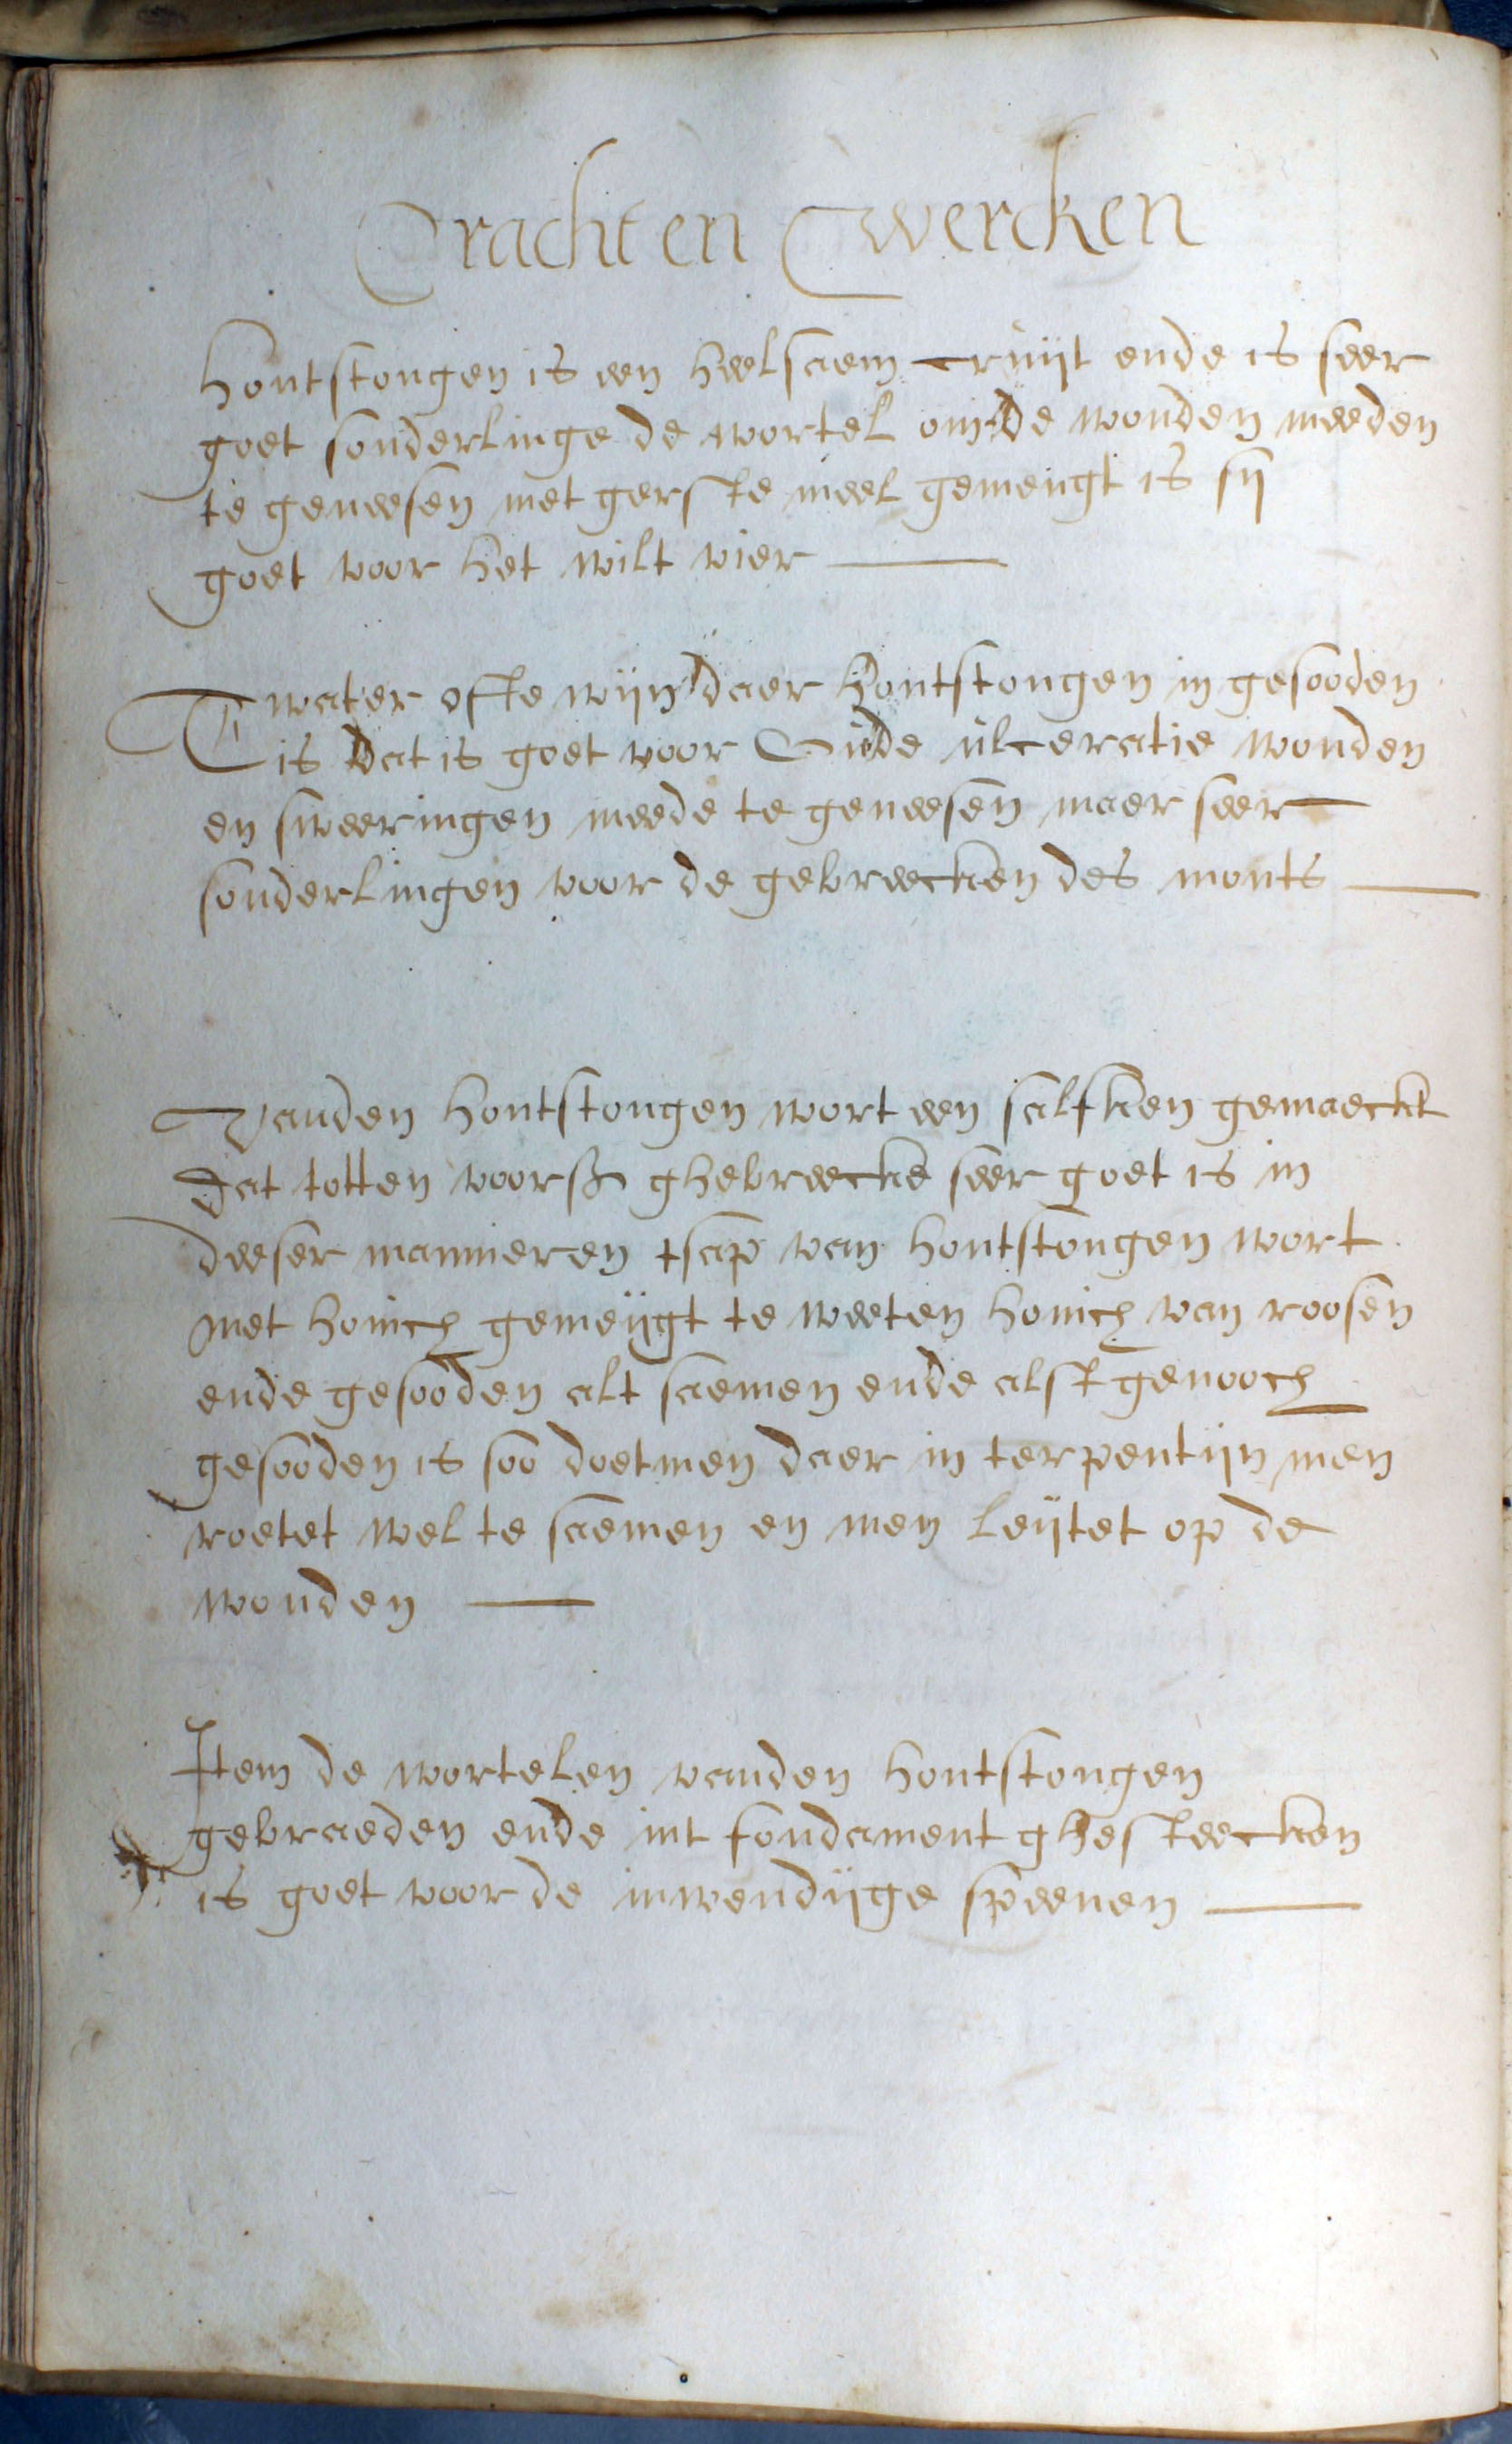 Cracht en Wercken
Hontstongen is een heelsaem cruijt ende is seer
goet sonderlinge de wortel om de wonden meeden
te geneesen met gerste meel gemengt is sij
goet voor het wilt vier
Twater ofte wijn daer hontstongen in gesooden
is dat is goet voor Oude ulceratie wonden
en sweeringen meede te geneesen maer seer
sonderlingen voor de gebreecken des monts
Vanden hontstongen wort een salfken gemaeckt
dat totten voors ghebreecke seer goet is in
deeser mannieren tsap van hontstongen wort
met honich gemeijgt te weeten honich van roosen
ende gesooden alt saemen ende alst genooch
gesooden is soo doetmen daer in terpentijn men
roetet wel te saemen en men leijtet op de
wonden
Item de wortelen vanden hontstongen
gebraeden ende int fondament ghesteecken
is goet voor de inwendijge speenen